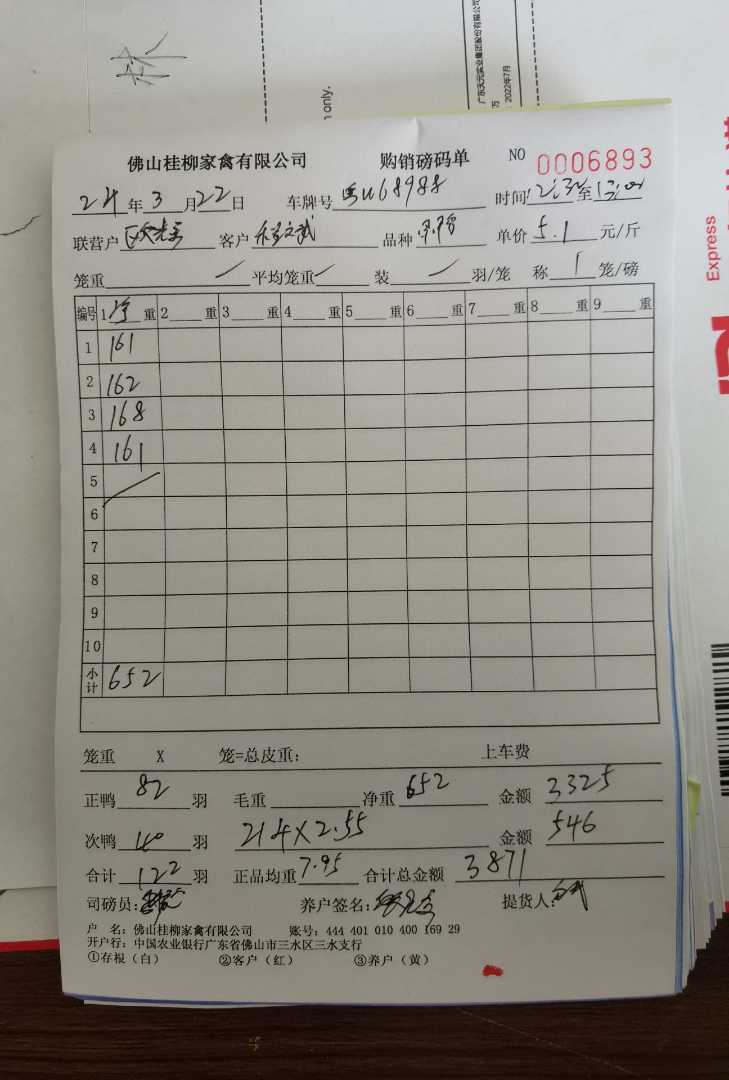 林
n only.
广东天元实业集团股份有限公司
2022年7月
Express
佛山桂柳家禽有限公司 购销磅码单 NO 0006893
24年3月22日 车牌号 粤U68988 时间 至
联营户 客户 品种 单价 5.1 元/斤
笼重 平均笼重 装 羽/笼 称 1 笼/磅
编号 1 净 重 2 重 3 重 4 重 5 重 6 重 7 重 8 重 9 重
1 161
2 162
3 168
4 161
5
6
7
8
9
10
小计 652
笼重 X 笼=总皮重: 上车费
正鸭 82 羽 毛重 净重 652 金额 3325
次鸭 40 羽 214X2.55 金额 546
合计 122 羽 正品均重 7.95 合计总金额 3871
司磅员: 养户签名: 提货人:
户 名: 佛山桂柳家禽有限公司 账号: 444 401 010 400 169 29
开户行: 中国农业银行广东省佛山市三水区三水支行
①存根(白) ②客户(红) ③养户(黄)